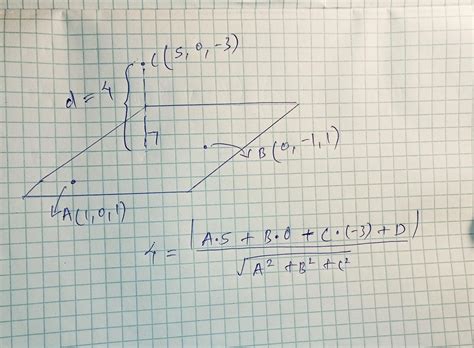 C(5, 0, -3)
d = 4
B(0, -1, 1)
A(1, 0, 1)
4 = |A·5 + B·0 + C·(-3) + D| / √A² + B² + C²